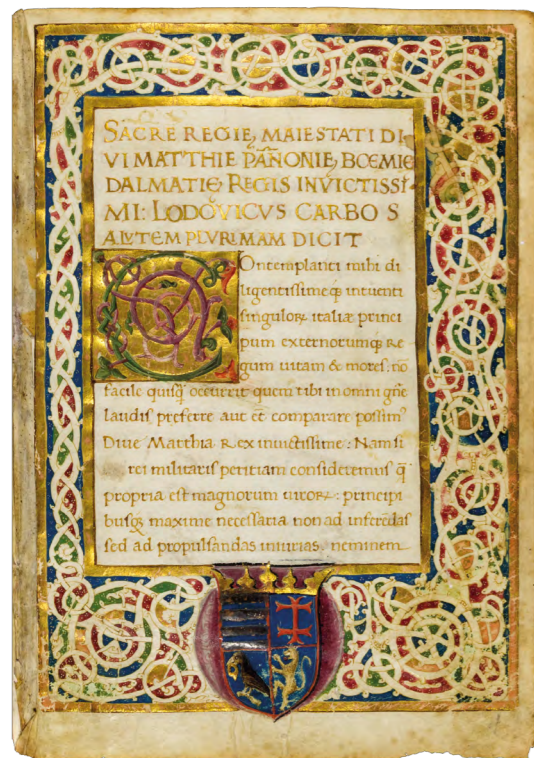 SACRE REGIĘ MAIESTATI DI
VI MATTHIE PAÑONIĘ BOEMIĘ
DALMATIĘ REGIS INVICTISSI
MI: LODOVICVS CARBO S
ALVTEM PLVRIMAM DICIT
COntemplanti mihi di
ligentissimeq; intuenti
singulorꝝ italiæ princi
pum externorumq; Re
gum uitam & mores: nõ
facile quisq̃ occurrit quem tibi in omni gñe
laudis preferre aut et̃ comparare possim?
Diue Matthia Rex inuictissime: Nam si
rei militaris peritiam consideremus q̃
propria est magnorum uirorꝝ: principi
busq; maxime necessaria non ad inferẽdas
sed ad propulsandas iniurias neminem